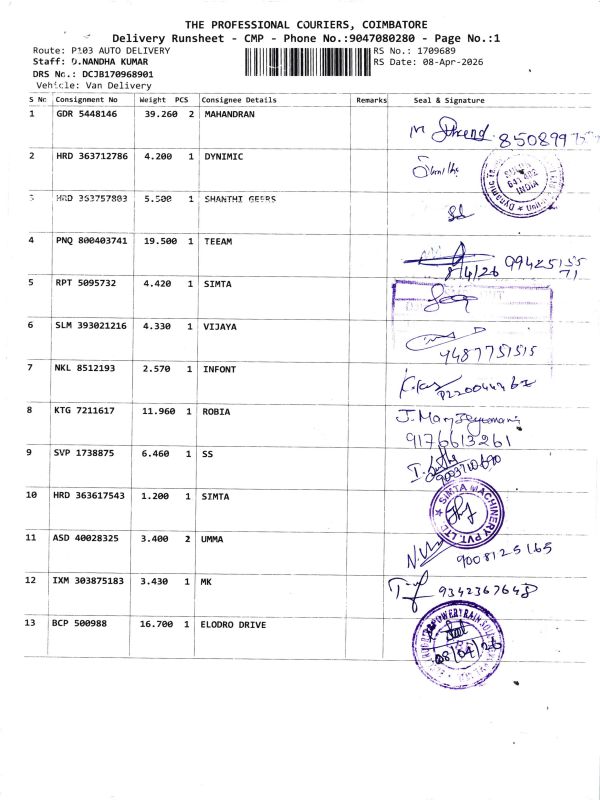 THE PROFESSIONAL COURIERS, COIMBATORE
Delivery Runsheet - CMP - Phone No.:9047080280 - Page No.:1
Route: P103 AUTO DELIVERY RS No.: 1709689
Staff: D.NANDHA KUMAR RS Date: 08-Apr-2026
DRS No.: DCJB170968901
Vehicle: Van Delivery
S No Consignment No Weight PCS Consignee Details Remarks Seal & Signature
1 GDR 5448146 39.260 2 MAHANDRAN
2 HRD 363712786 4.200 1 DYNIMIC
INDIA
3 HRD 363757803 5.500 1 SHANTHI GEERS
4 PNQ 800403741 19.500 1 TEEAM
8/4/26 99425155
71
5 RPT 5095732 4.420 1 SIMTA
6 SLM 393021216 4.330 1 VIJAYA
9487751515
7 NKL 8512193 2.570 1 INFONT
8 KTG 7211617 11.960 1 ROBIA
9176613261
9 SVP 1738875 6.460 1 SS
10 HRD 363617543 1.200 1 SIMTA
SIMTA MACHINERY PVT. LTD
11 ASD 40028325 3.400 2 UMMA
9008125165
12 IXM 303875183 3.430 1 MK
9342367648
13 BCP 500988 16.700 1 ELODRO DRIVE
08/04/26